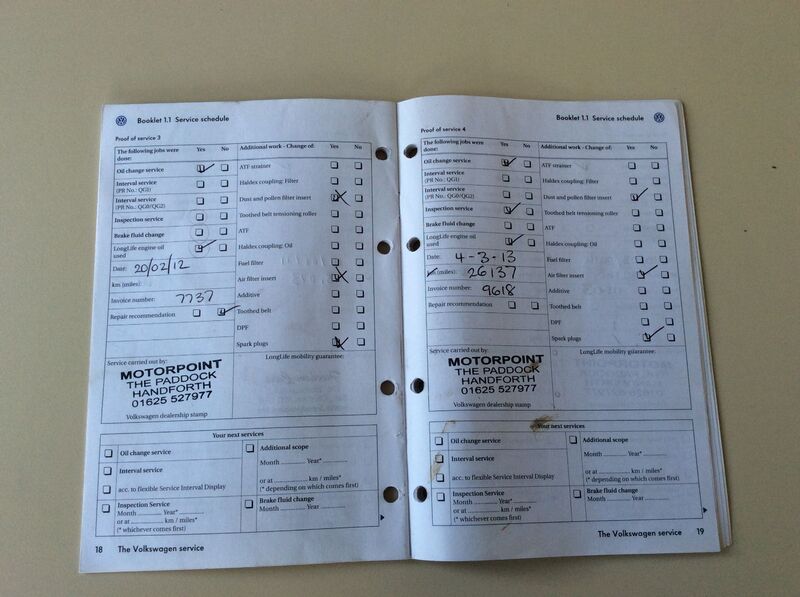 Booklet 1.1 Service schedule
Proof of service 3
The following jobs were done: Yes No
Oil change service
Interval service
(PR No.: QG1)
Interval service
(PR No.: QG0/QG2)
Inspection service
Brake fluid change
LongLife engine oil
used
Date: 20/02/12
km (miles):
Invoice number: 7737
Repair recommendation
Additional work - Change of: Yes No
ATF strainer
Haldex coupling: Filter
Dust and pollen filter insert
Toothed belt tensioning roller
ATF
Haldex coupling: Oil
Fuel filter
Air filter insert
Additive
Toothed belt
DPF
Spark plugs
Service carried out by:
MOTORPOINT
THE PADDOCK
HANDFORTH
01625 527977
Volkswagen dealership stamp
LongLife mobility guarantee:
Your next services
Oil change service
Interval service
acc. to flexible Service Interval Display
Inspection Service
Month ............ Year*............
or at ............ km / miles*
(* whichever comes first)
Additional scope
Month ............ Year*............
or at ............ km / miles*
(* depending on which comes first)
Brake fluid change
Month ............ Year............
18 The Volkswagen service
Booklet 1.1 Service schedule
Proof of service 4
The following jobs were done: Yes No
Oil change service
Interval service
(PR No.: QG1)
Interval service
(PR No.: QG0/QG2)
Inspection service
Brake fluid change
LongLife engine oil
used
Date: 4-3-13
km (miles): 26137
Invoice number: 9618
Repair recommendation
Additional work - Change of: Yes No
ATF strainer
Haldex coupling: Filter
Dust and pollen filter insert
Toothed belt tensioning roller
ATF
Haldex coupling: Oil
Fuel filter
Air filter insert
Additive
Toothed belt
DPF
Spark plugs
Service carried out by:
MOTORPOINT
THE PADDOCK
HANDFORTH
01625 527977
Volkswagen dealership stamp
LongLife mobility guarantee:
Your next services
Oil change service
Interval service
acc. to flexible Service Interval Display
Inspection Service
Month ............ Year*............
or at ............ km / miles*
(* whichever comes first)
Additional scope
Month ............ Year*............
or at ............ km / miles*
(* depending on which comes first)
Brake fluid change
Month ............ Year............
The Volkswagen service 19